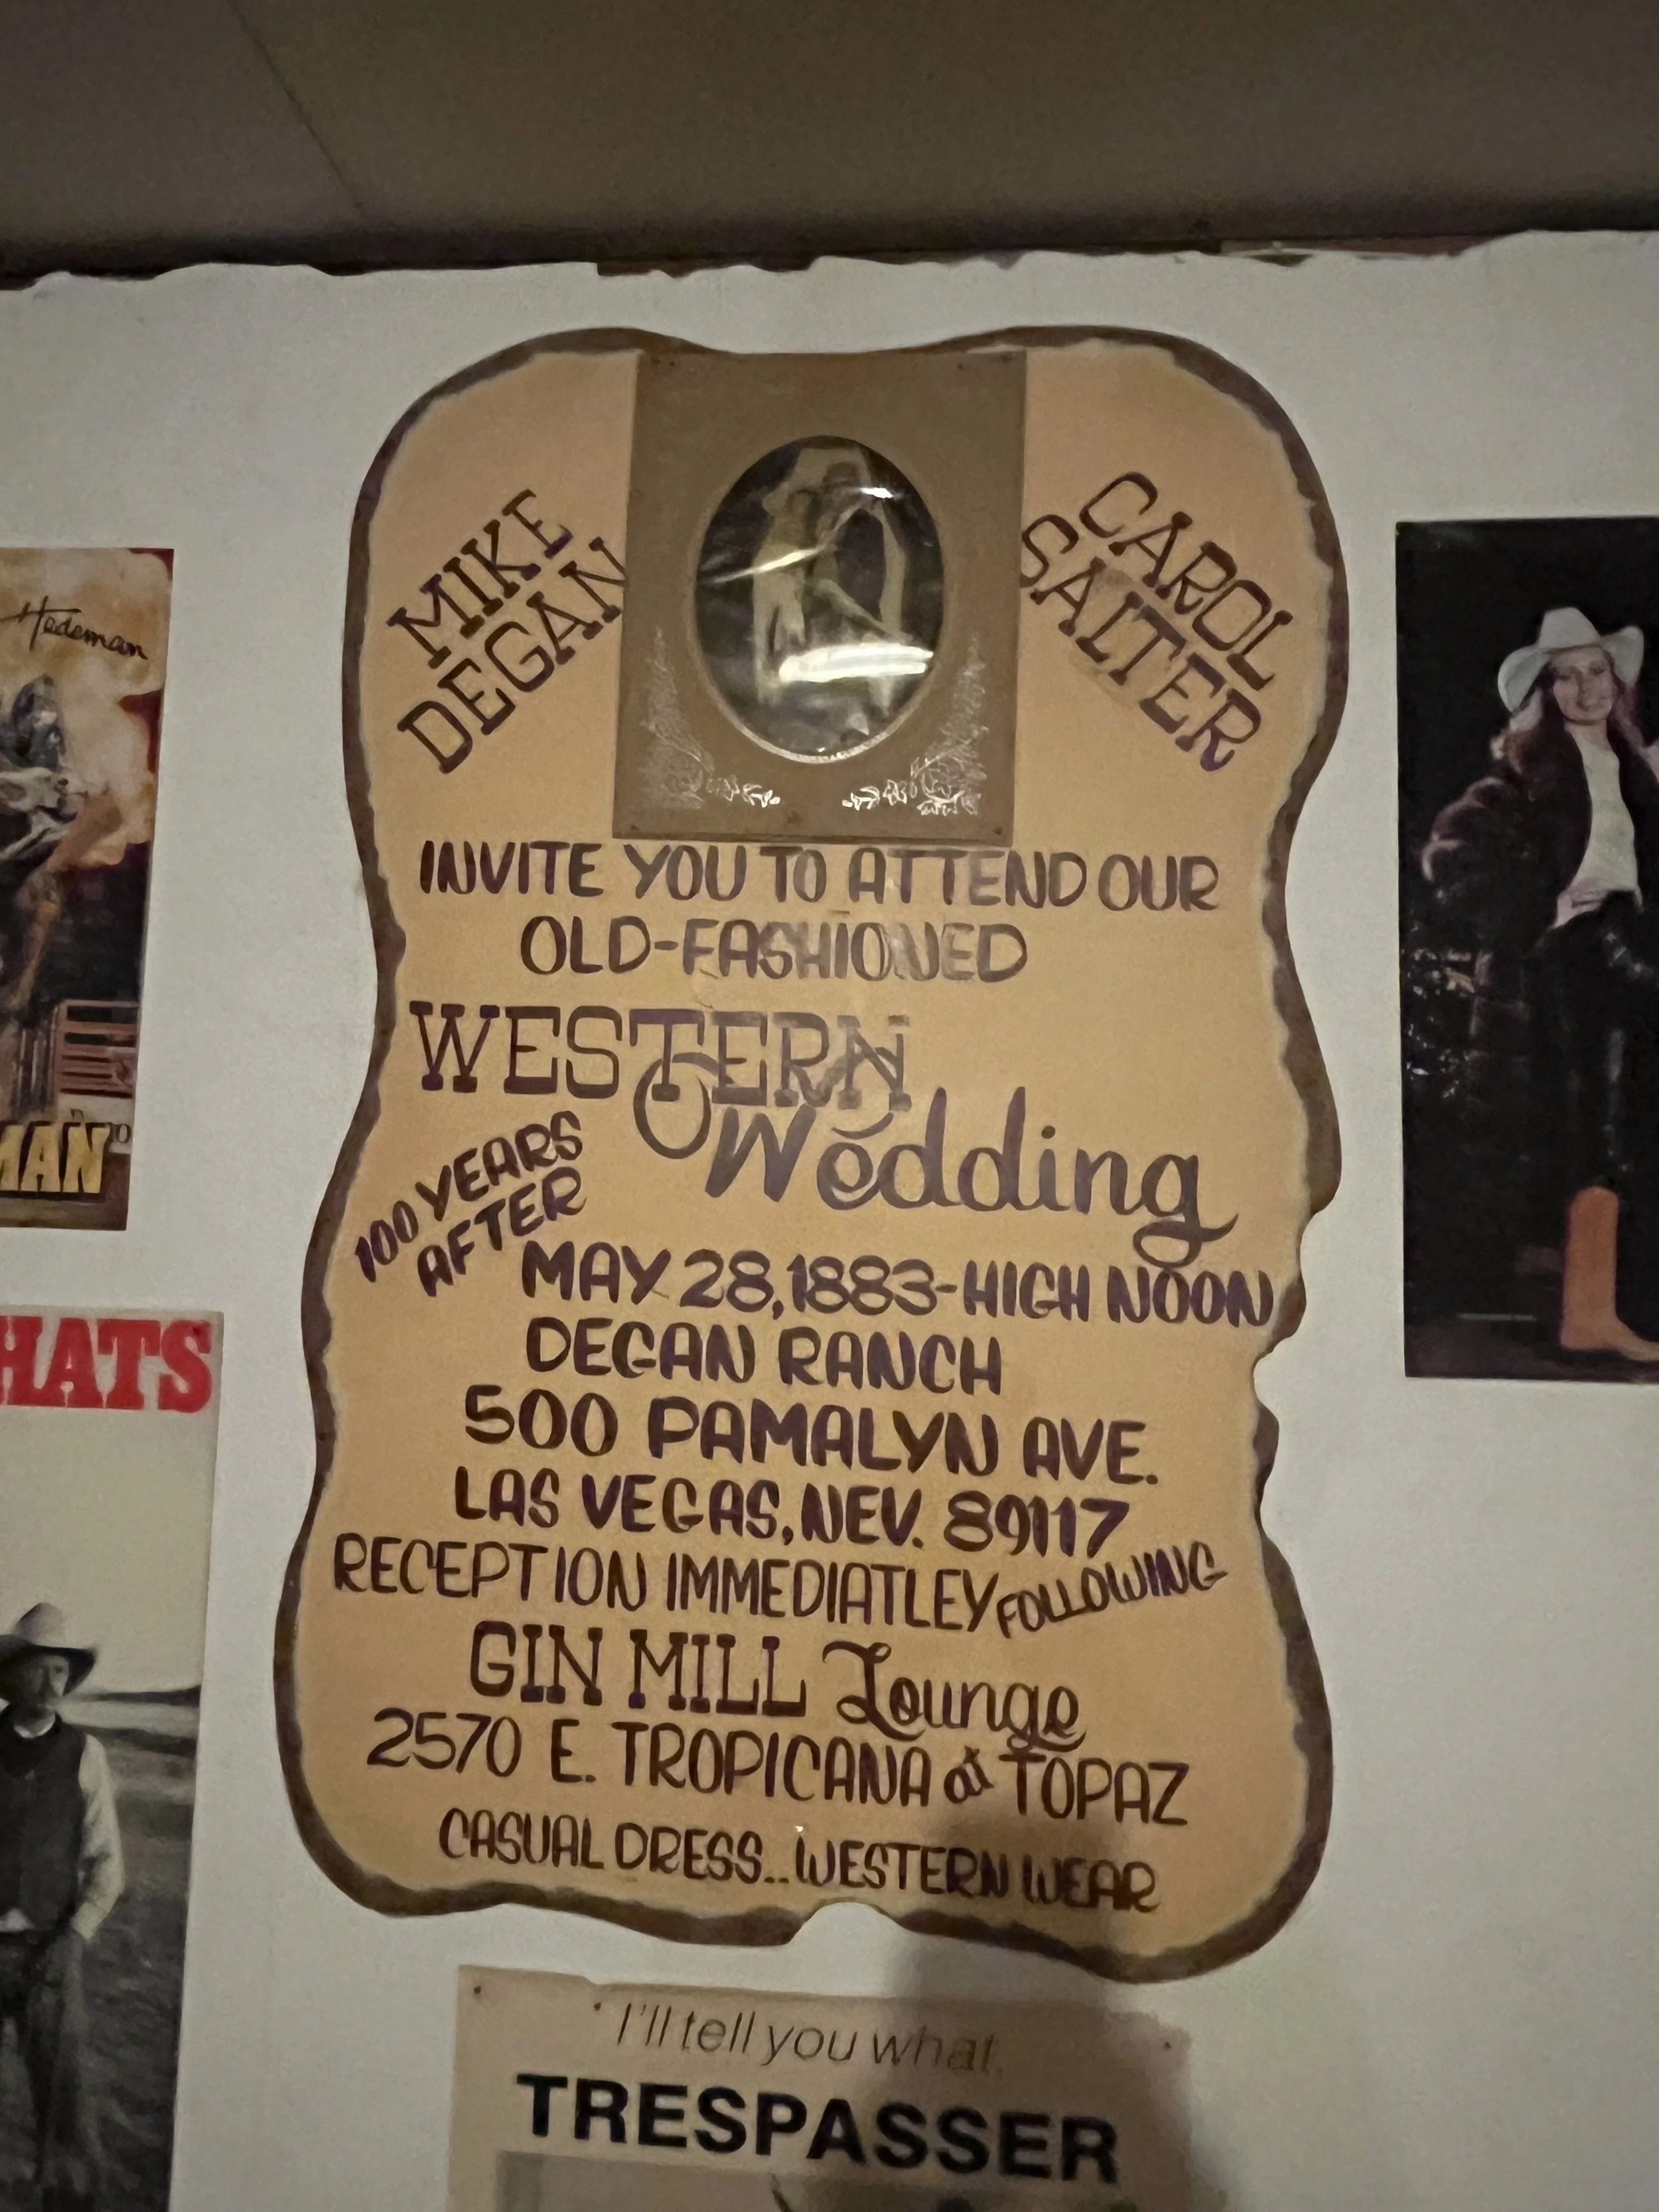 MIKE
DEGAN
CAROL
SALTER
INVITE YOU TO ATTEND OUR
OLD-FASHIONED
WESTERN
Wedding
100 YEARS
AFTER
MAY 28, 1883-HIGH NOON
DEGAN RANCH
500 PAMALYN AVE.
LAS VEGAS, NEV. 89117
RECEPTION IMMEDIATLEY FOLLOWING
GIN MILL Lounge
2570 E. TROPICANA at TOPAZ
CASUAL DRESS.. WESTERN WEAR
Hedeman
MAN
HATS
I'll tell you what,
TRESPASSER